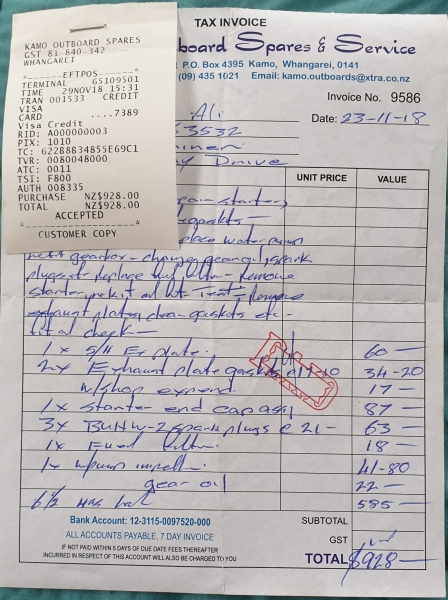 KAMO OUTBOARD SPARES
GST 81 840 342
WHANGAREI
*-----EFTPOS-----*
TERMINAL 65109501
TIME 29NOV18 15:31
TRAN 001533 CREDIT
VISA
CARD ....7389
Visa Credit
RID: A000000003
PIX: 1010
TC: 622B8B34855E69C1
TVR: 0080048000
ATC: 0011
TSI: F800
AUTH 008335
PURCHASE NZ$928.00
TOTAL NZ$928.00
ACCEPTED
CUSTOMER COPY
TAX INVOICE
board Spares & Service
P.O. Box 4395 Kamo, Whangarei, 0141
(09) 435 1021 Email: kamo.outboards@xtra.co.nz
Invoice No. 9586
Ali Date: 23-11-18
3532
Drive
UNIT PRICE VALUE
gaskets -
place water pump
gearbox - change gear oil, spark
plugs etc replace fuel filter - Remove
starter, Test - Remove
exhaust plates, clean gaskets etc -
total check -
1 x S/H Ex plate. 60 —
2x Exhaust plate gaskets @ 17-10 34-20
PAID
w/shop expend. 17 —
1x starter end cap assy 87 —
3x BUHW-2 spark plugs @ 21- 63 —
1x Fuel filter 18 —
1x w/pump impeller 41-80
gear oil 22 —
6½ Hrs lab 585 —
Bank Account: 12-3115-0097520-000
ALL ACCOUNTS PAYABLE, 7 DAY INVOICE
IF NOT PAID WITHIN 5 DAYS OF DUE DATE FEES THEREAFTER
INCURRED IN RESPECT OF THIS ACCOUNT WILL ALSO BE CHARGED TO YOU
SUBTOTAL
GST
TOTAL $928 —